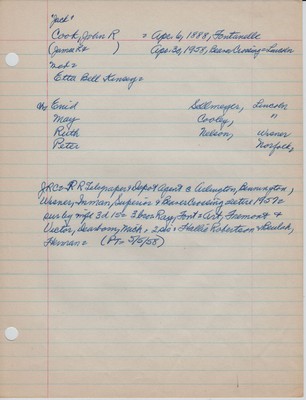 "Jack"
Cook, John R = Apr. 6, 1888, Fontanelle
(James R= ) Apr. 30, 1958, Beaver Crossing = Lincoln
mo=
Etta Bell Kinsey=
ch= Enid Sellmeyer, Lincoln
May Cooley, "
Ruth Nelson, Wisner
Peter Norfolk,
JRC= RR Telegrapher & Depot Agent @ Arlington, Bennington,
Wisner, Inman, Superior & Beaver Crossing retired 1957=
sur by wf 3d 1s= 3 bros Ray, Font= Art, Fremont &
Victor, Dearborn, Mich. = 2 sis: Hallie Robertson & Beulah,
Herman= (PT= 5/5/58)